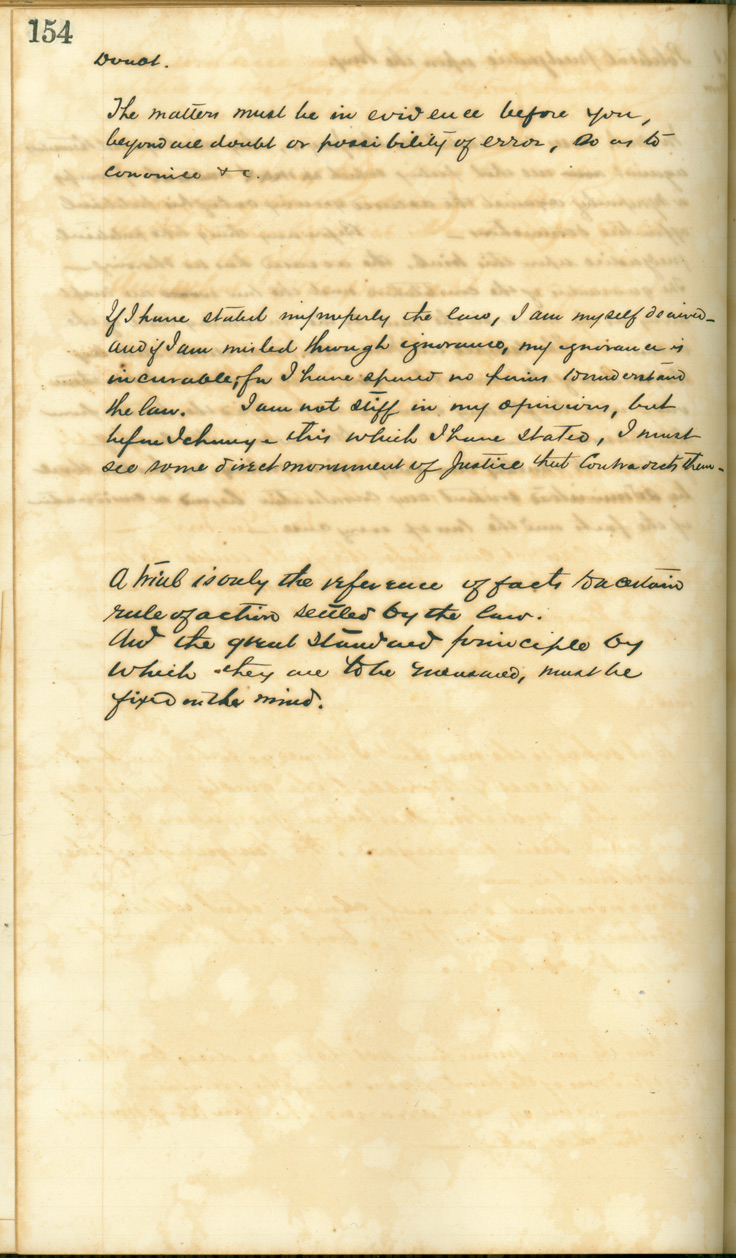 154
Doubt.
The matters must be in evidence before you,
beyond all doubt or possibility of error, so as to
convince &c.
If I have stated improperly the law, I am myself deceived–
and if I am misled through ignorance, my ignorance is
incurable; for I have spared no pains to understand
the law. I am not stiff in my opinions, but
before I change this which I have stated, I must
see some direct monument of Justice that Contradicts them–
A trial is only the reference of facts to a certain
rule of action settled by the law.
And the great standard principle by
which they are to be measured, must be
fixed in the mind.